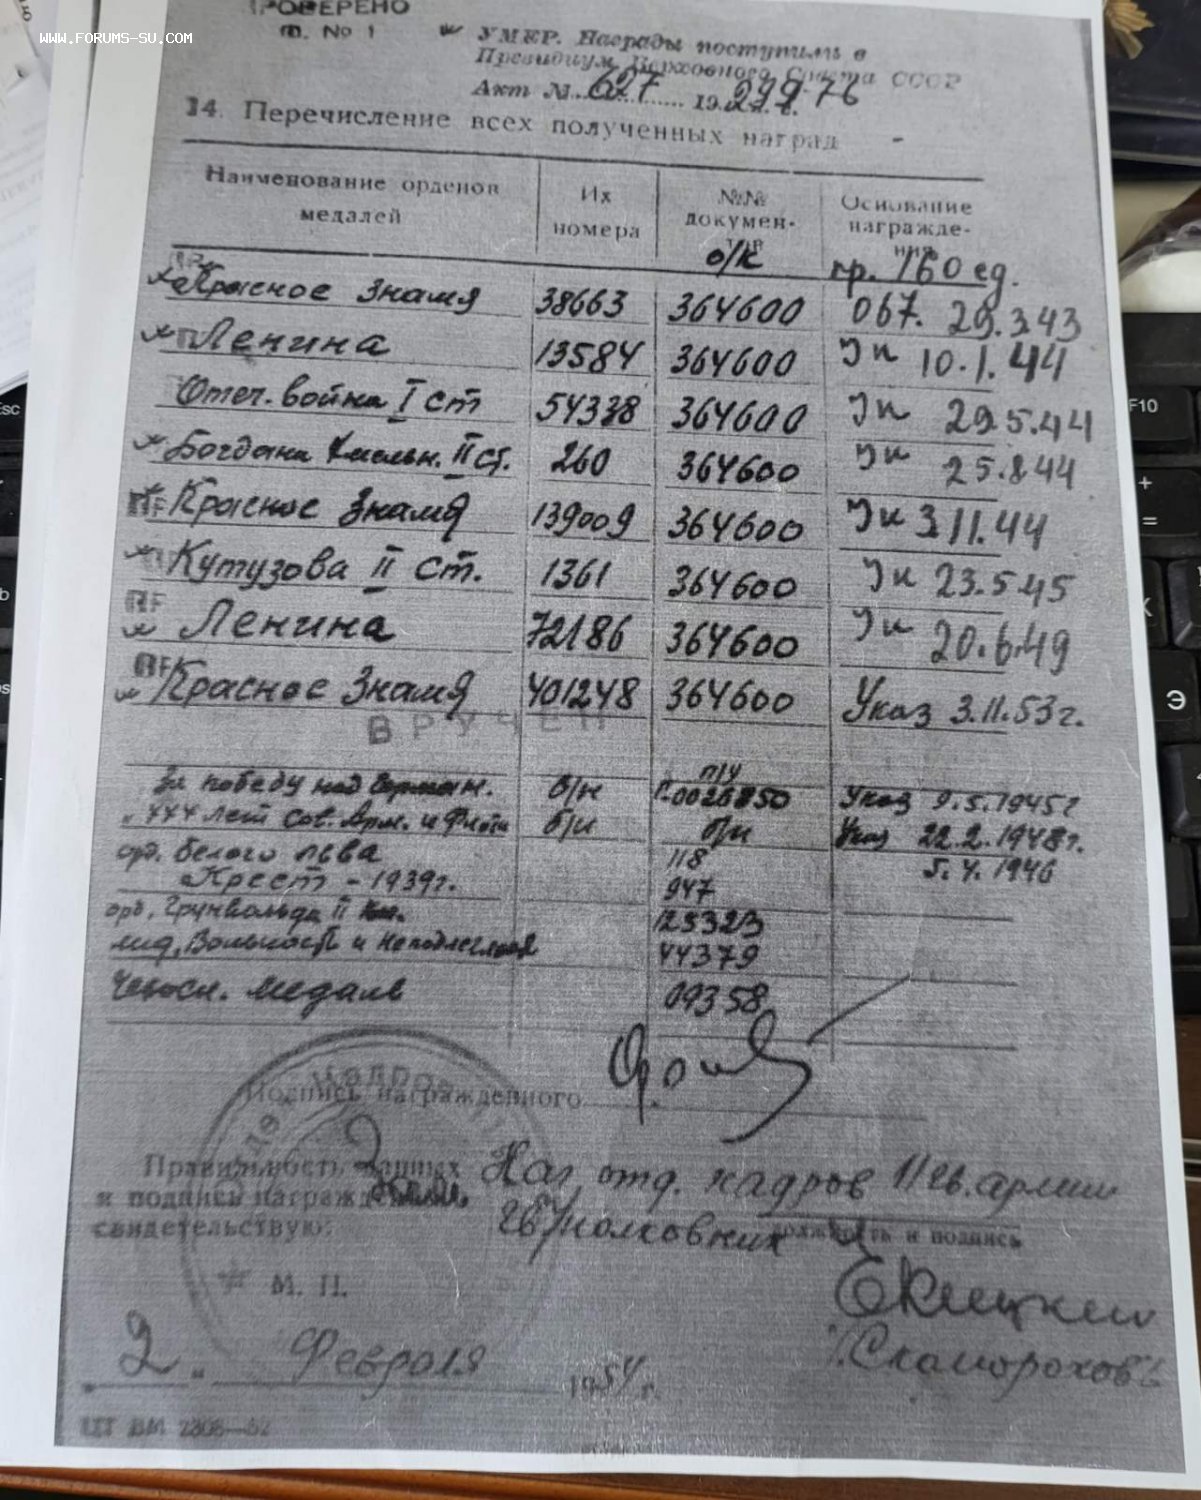 WWW.FORUMS-SU.COM
РОВЕРЕНО
ф. No 1
УМЕР. Награды поступили в
Президиум Верховного Совета СССР
Акт № 627 19 76
14. Перечисление всех полученных наград -
Наименование орденов медалей Их номера №№ докумен- Основание награжде-
о/к пр. 160 ед.
Красное Знамя 38663 364600 067. 29.3.43
Ленина 13584 364600 Ук 10.1.44
Отеч. война I ст 54338 364600 Ук 29.5.44
Богдана Хмельн. II ст. 260 364600 Ук 25.8.44
Красное Знамя 139009 364600 Ук 3.11.44
Кутузова II ст. 1361 364600 Ук 23.5.45
Ленина 72186 364600 Ук 20.6.49
Красное Знамя 401248 364600 Указ 3.11.53г.
ВРУЧЕН
п/у
За победу над Герман. б/н 0026850 Указ 9.5.1945г
" ХХХ лет Сов. Арм. и Флота б/н б/н Указ 22.2.1948г.
орд. Белого льва 118 5.4.1946
Крест - 1939г. 947
орд. Грюнвальда II 123323
мед. Вольность и Неподлеглость 44379
Чехосл. медаль 09358
Подпись награжденного
Правильность данных Нач отд. кадров 11 гв. армии
и подпись награжд
свидетельствую: гв. полковник
должность и подпись
М. П.
/Скоморохов
"2" Февраля 1954 г.
F10
Э